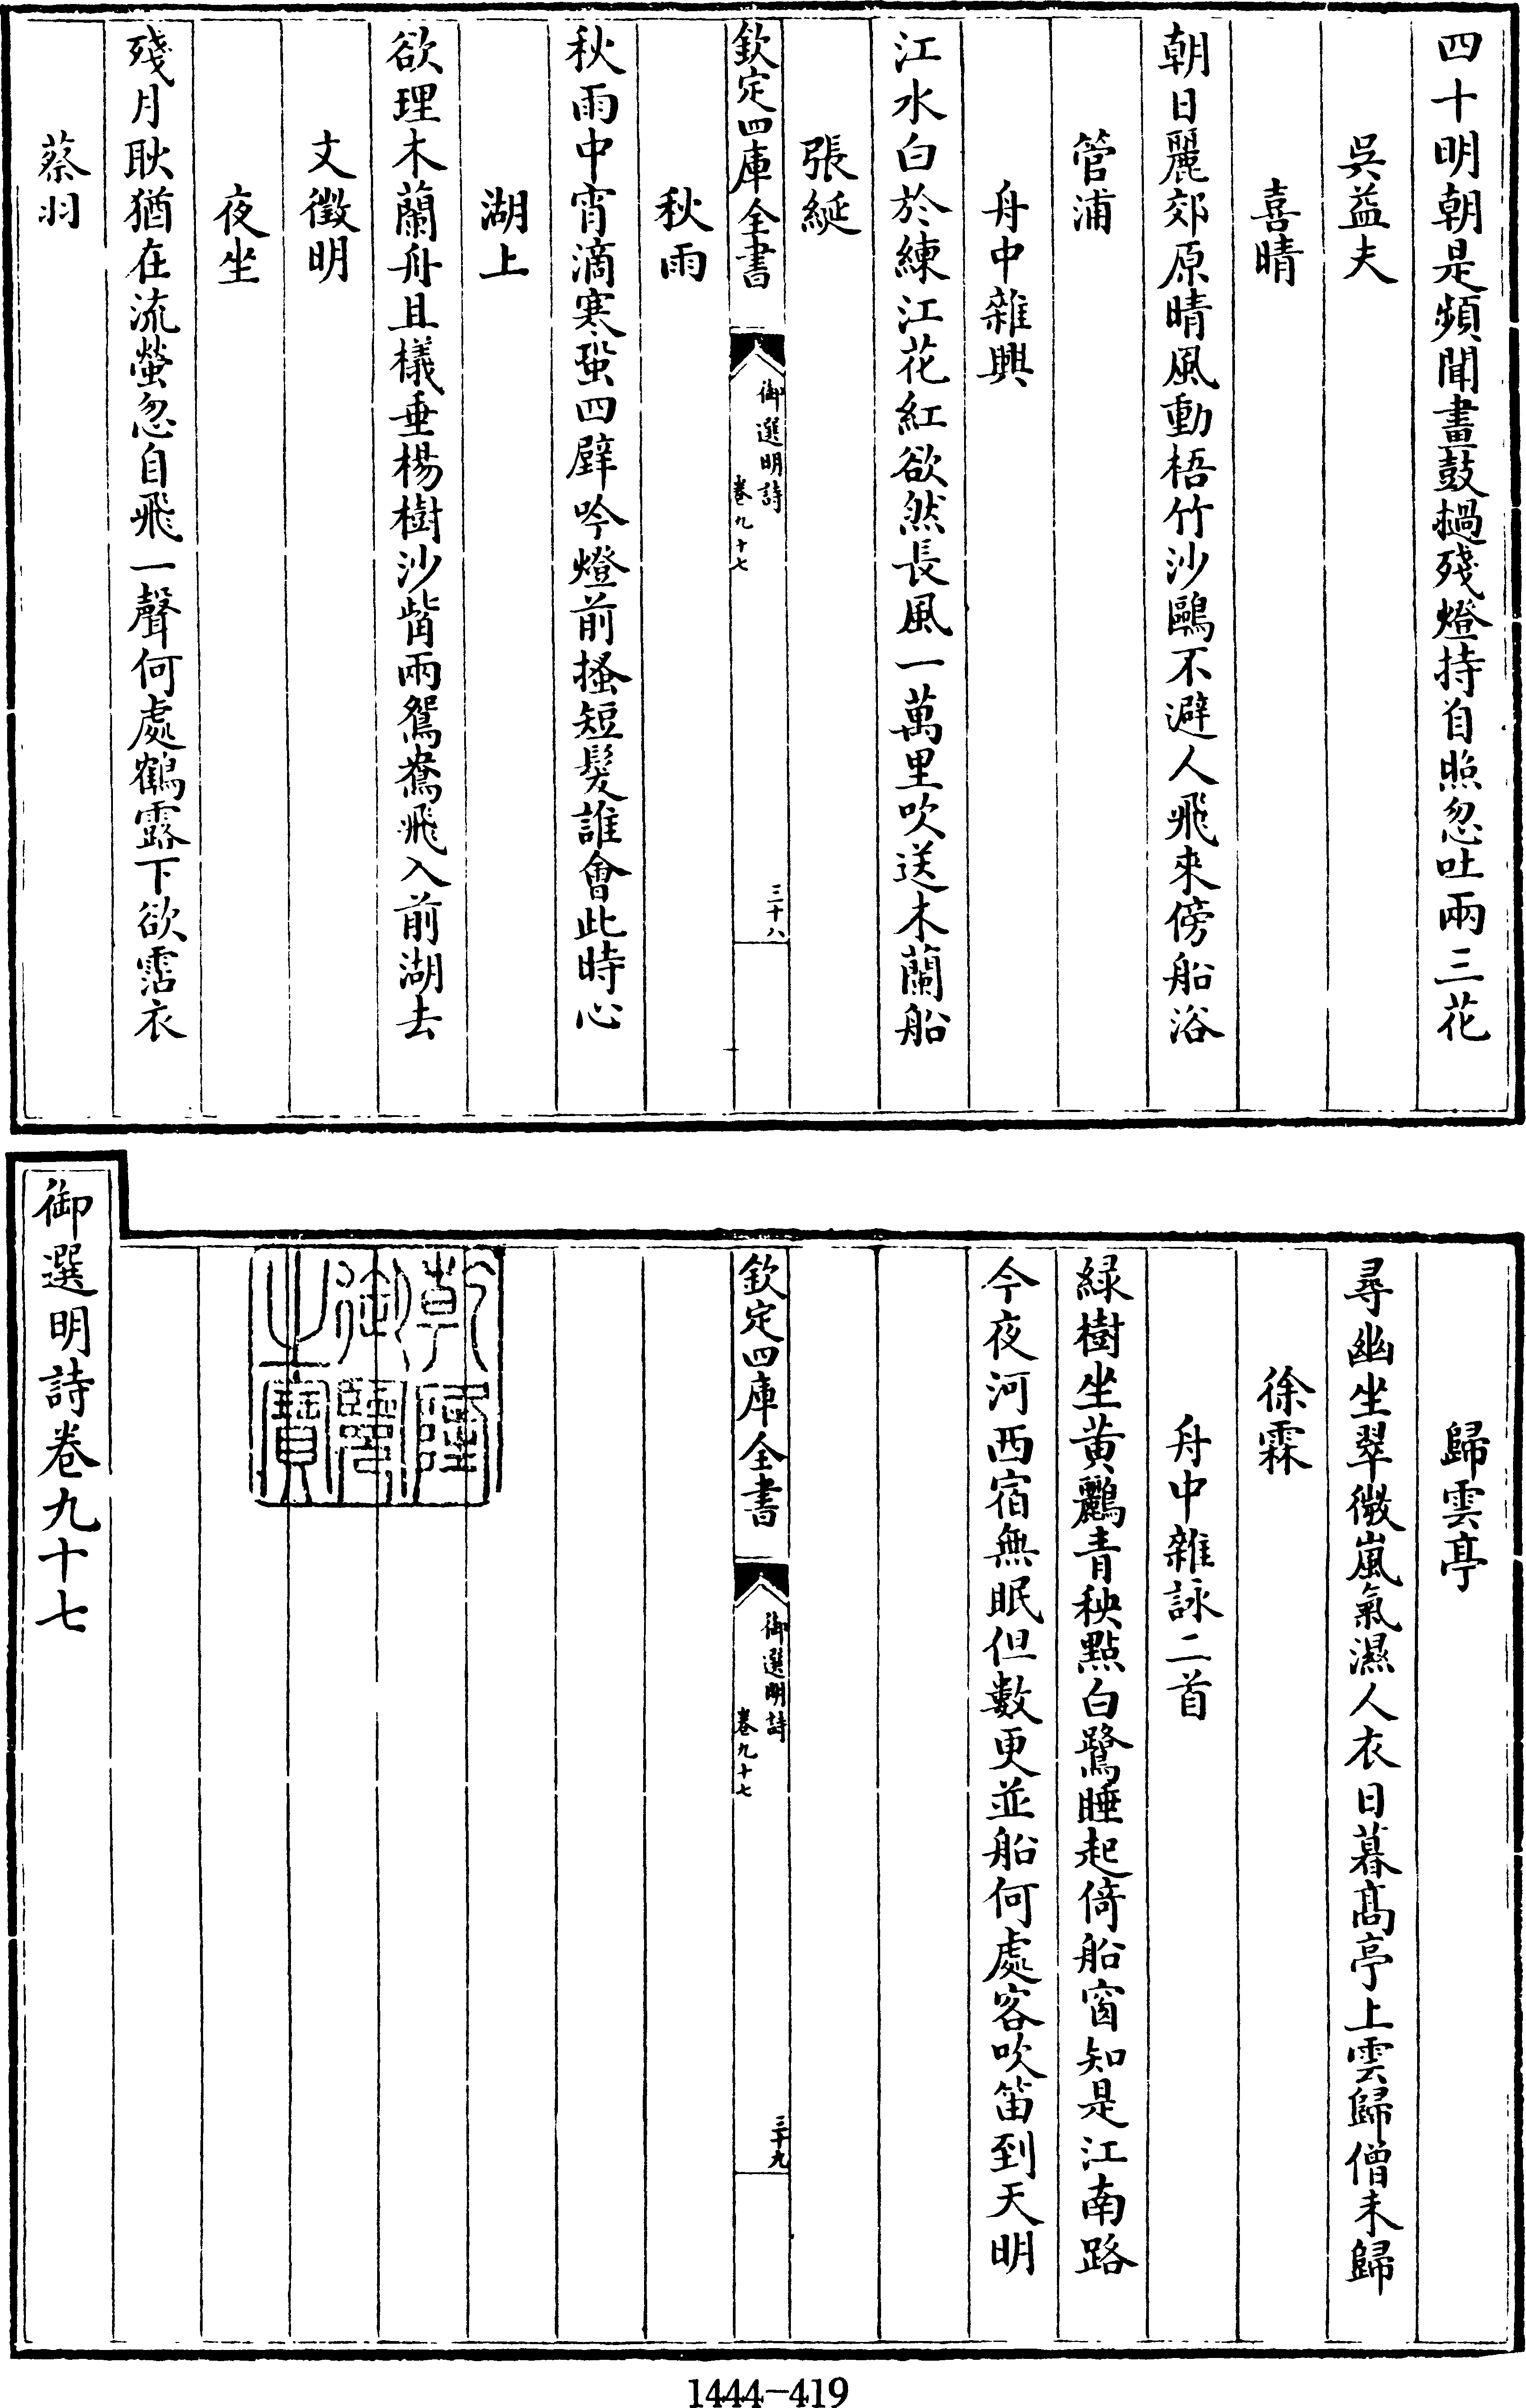 四十明朝是頻聞畫鼓撾殘燈持自照忽吐兩三花
吳益夫
喜晴
朝日麗郊原晴風動梧竹沙鷗不避人飛來傍船浴
管浦
舟中雜興
江水白於練江花紅欲然長風一萬里吹送木蘭船
張綖
欽定四庫全書
御選明詩
卷九十七
三十八
秋雨
秋雨中宵滴寒蛩四壁吟燈前搔短髮誰會此時心
湖上
欲理木蘭舟且檥垂楊樹沙觜兩鴛鴦飛入前湖去
文徵明
夜坐
殘月耿猶在流螢忽自飛一聲何處鶴露下欲霑衣
蔡羽
歸雲亭
尋幽坐翠微嵐氣濕人衣日暮髙亭上雲歸僧未歸
徐霖
舟中雜詠二首
緑樹坐黃鸝青秧點白鷺睡起倚船窗知是江南路
今夜河西宿無眠但數更並船何處客吹笛到天明
欽定四庫全書
御選明詩
卷九十七
三十九
乾隆
御覽
之寶
御選明詩卷九十七
1444-419